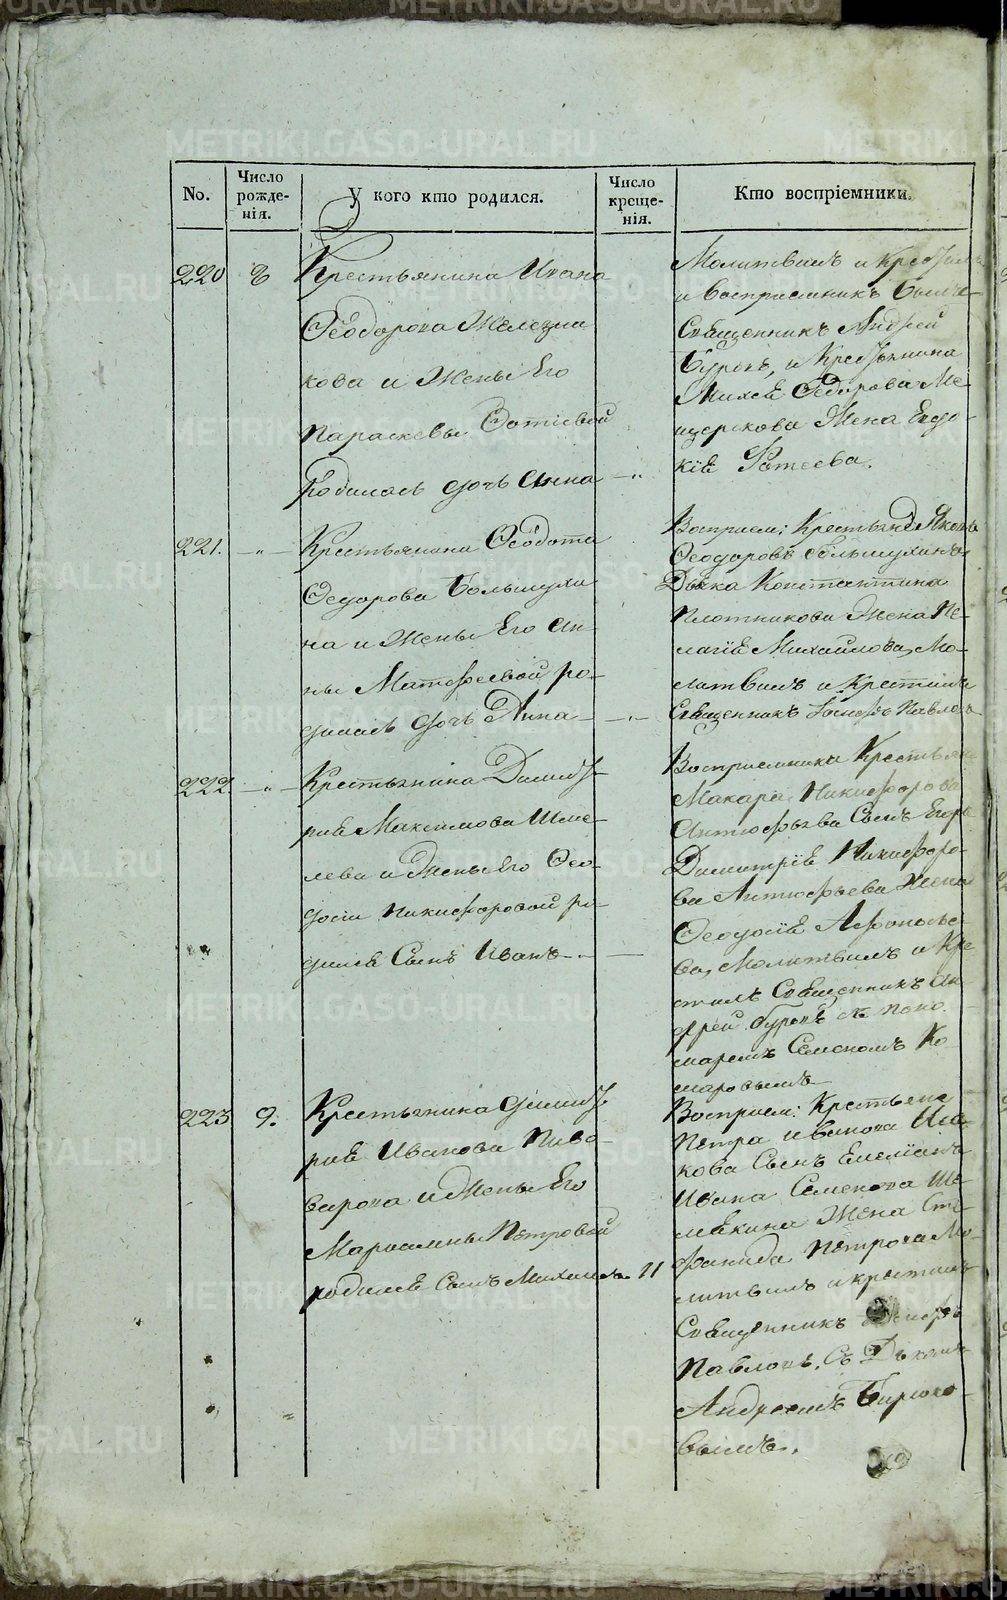 METRIKI.GASO-URAL.RU
No.
Число рожде-
нія.
У кого кто родился.
Число
креще-
нія.
Кто воспріемники.
220
8
Крестьянина Ивана
Ѳеодорова Железни
кова и Жены Его
Параскевы Фотіевой
родилась дочь Анна
Молитвилъ и
и восприемникъ былъ
Священникъ Андрей
Буровъ, и
Михея Ѳедорова Ме-
щерскова Жена Евдо
кія Фатеева.
221.
Крестьянина Ѳеодота
Ѳедорова Большухи
на и Жены Его Ан-
ны Матфеевой ро-
дилась дочь Анна
Восприем: Яковъ
Ѳеодоровъ Большухинъ,
Дьяка Константина
Плотникова Жена Пе-
лагія Михайлова, Мо-
литвилъ и Крестилъ
Священникъ Іосифъ Павловъ
222.
Крестьянина Димит
рія Максимова Шме-
лева и Жены Его Ѳео-
досіи Никифоровой ро-
дился Сынъ Иванъ
Восприемники Крестьян
Макара Никифорова
Антюфьева Сынъ Егоръ
Димитрія Никифоро-
ва Антюфьева Жена
Ѳеодосія Афонасье-
ва, Молитвилъ и Кре
стилъ Священникъ Ан
дрей Буровъ съ поно.
маремъ Семеномъ Ко
маровымъ
223
9.
Крестьянина Димит
рія Иванова Пиво-
варова и Жены Его
Мариамны Петровой
родился Сынъ Михаилъ
11
Восприем: Крестьяна
Петра Иванова
кова Сынъ Емеліанъ
Ивана Семенова Ше-
мякина Жена Сте-
фанида Петрова Мо-
литвилъ и крестилъ
Священникъ Іосифъ
Павловъ, Съ Дьякомъ
Андреемъ Бирюко-
вымъ.